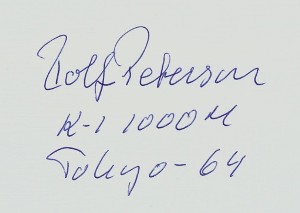 Rolf Peterson
K-1 1000 M
Tokyo-64